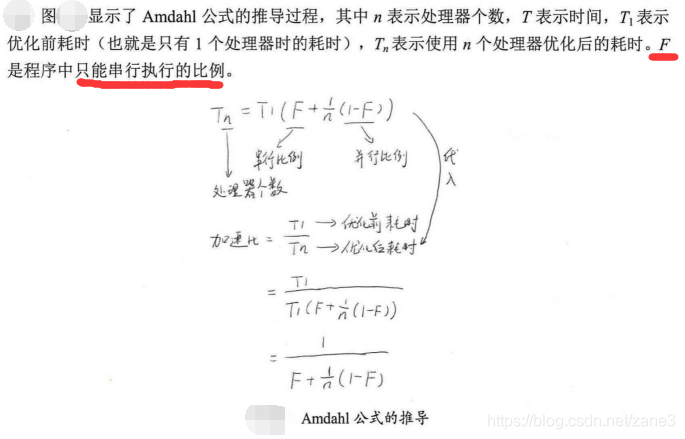 图 显示了 Amdahl 公式的推导过程，其中 n 表示处理器个数，T 表示时间，T₁ 表示
优化前耗时（也就是只有 1 个处理器时的耗时），Tₙ 表示使用 n 个处理器优化后的耗时。F
是程序中只能串行执行的比例。
Tn = T1 ( F + 1/n (1-F) )
串行比例 并行比例
处理器个数
代入
加速比 = T1/Tn → 优化前耗时
→ 优化后耗时
= T1 / T1(F + 1/n (1-F))
= 1 / F + 1/n (1-F)
Amdahl 公式的推导
https://blog.csdn.net/zane3